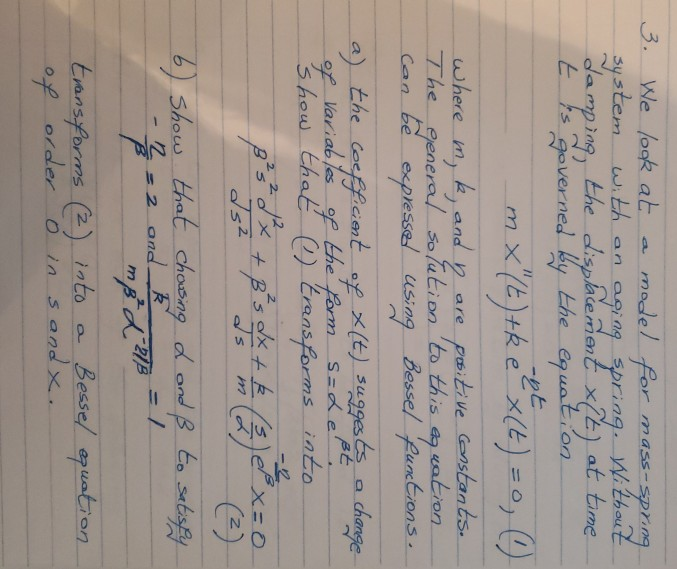 3. We look at a model for mass-spring
system with an aging spring. Without
damping, the displacement x(t) at time
t is governed by the equation
m x''(t) + k e^{-ηt} x(t) = 0, (1)
where m, k, and η are positive constants.
The general solution to this equation
can be expressed using Bessel functions.
a) the coefficient of x(t) suggests a change
of variables of the form s = α e^{βt}.
Show that (1) transforms into
β²s² d²x/ds² + β²s dx/ds + k/m (s/α)^{-η/β} x = 0
(2)
b) Show that choosing α and β to satisfy
-η/β = 2 and k/(mβ²α^{-η/β}) = 1
transforms (2) into a Bessel equation
of order 0 in s and x.